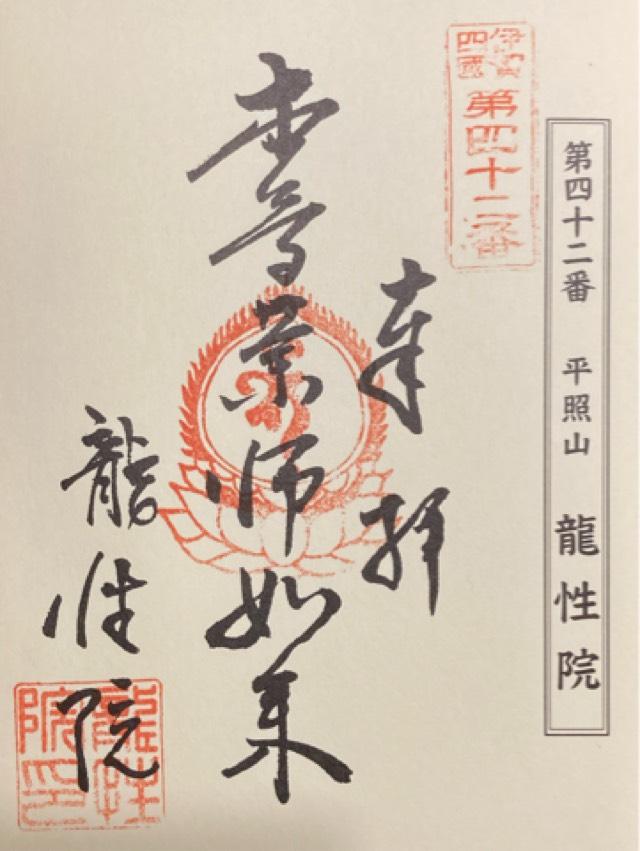 第四十二番 平照山 龍性院
伊賀四國
第四十二番
奉拝
本尊薬師如来
龍性院
龍性院印